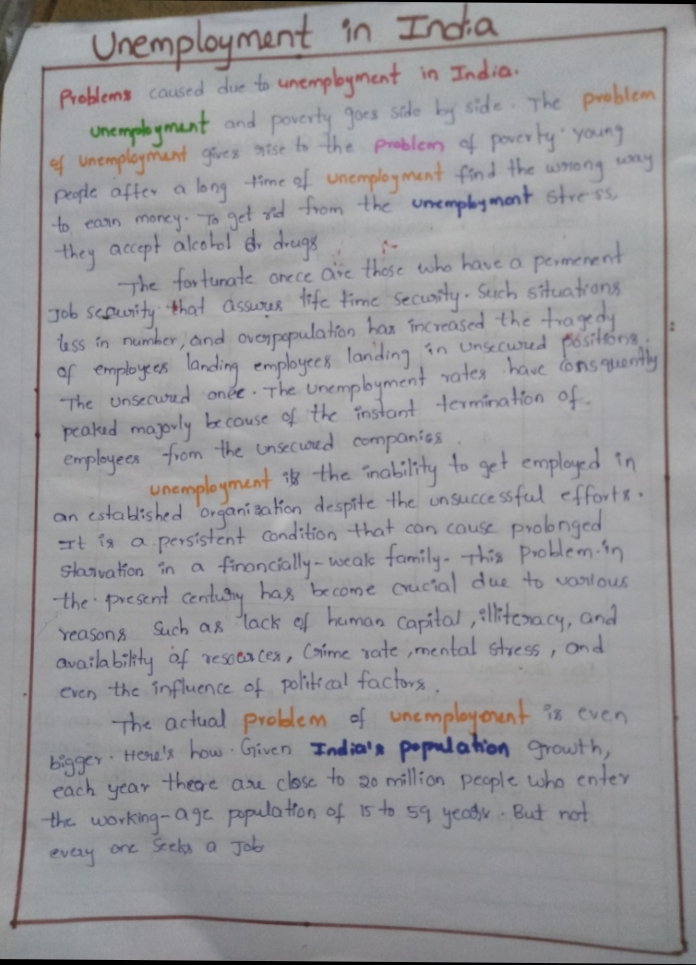 Unemployment in India
Problems caused due to unemployment in India.
unemployment and poverty goes side by side. The problem
of unemployment gives rise to the problem of poverty. young
people after a long time of unemployment find the wrong way
to earn money. To get rid from the unemployment stress,
they accept alcohol or drugs
The fortunate onece are those who have a permenent
Job security that assures life time security. Such situations
less in number, and overpopulation has increased the tragedy
of employees landing employees landing in unsecured positions.
The unsecured once. The unemployment rates have consquently
peaked majorly because of the instant termination of
employees from the unsecured companies.
unemployment is the inability to get employed in
an established organisation despite the unsuccessful efforts.
It is a persistent condition that can cause prolonged
starvation in a financially-weak family. This problem in
the present century has become crucial due to various
reasons such as lack of human capital, illiteracy, and
availability of resources, Crime rate, mental stress, and
even the influence of political factors.
The actual problem of unemployment is even
bigger. Here's how. Given India's population growth,
each year there are close to 20 million people who enter
the working-age population of 15 to 59 years. But not
every one seeks a Job